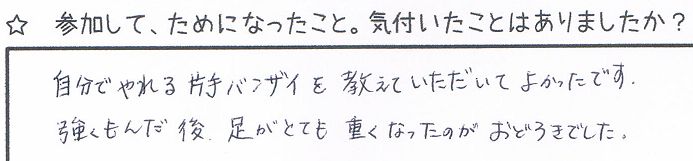 ☆ 参加して、ためになったこと。気付いたことはありましたか？
自分でやれる片手バンザイを教えていただいてよかったです.
強くもんだ後、足がとても重くなったのがおどろきでした。